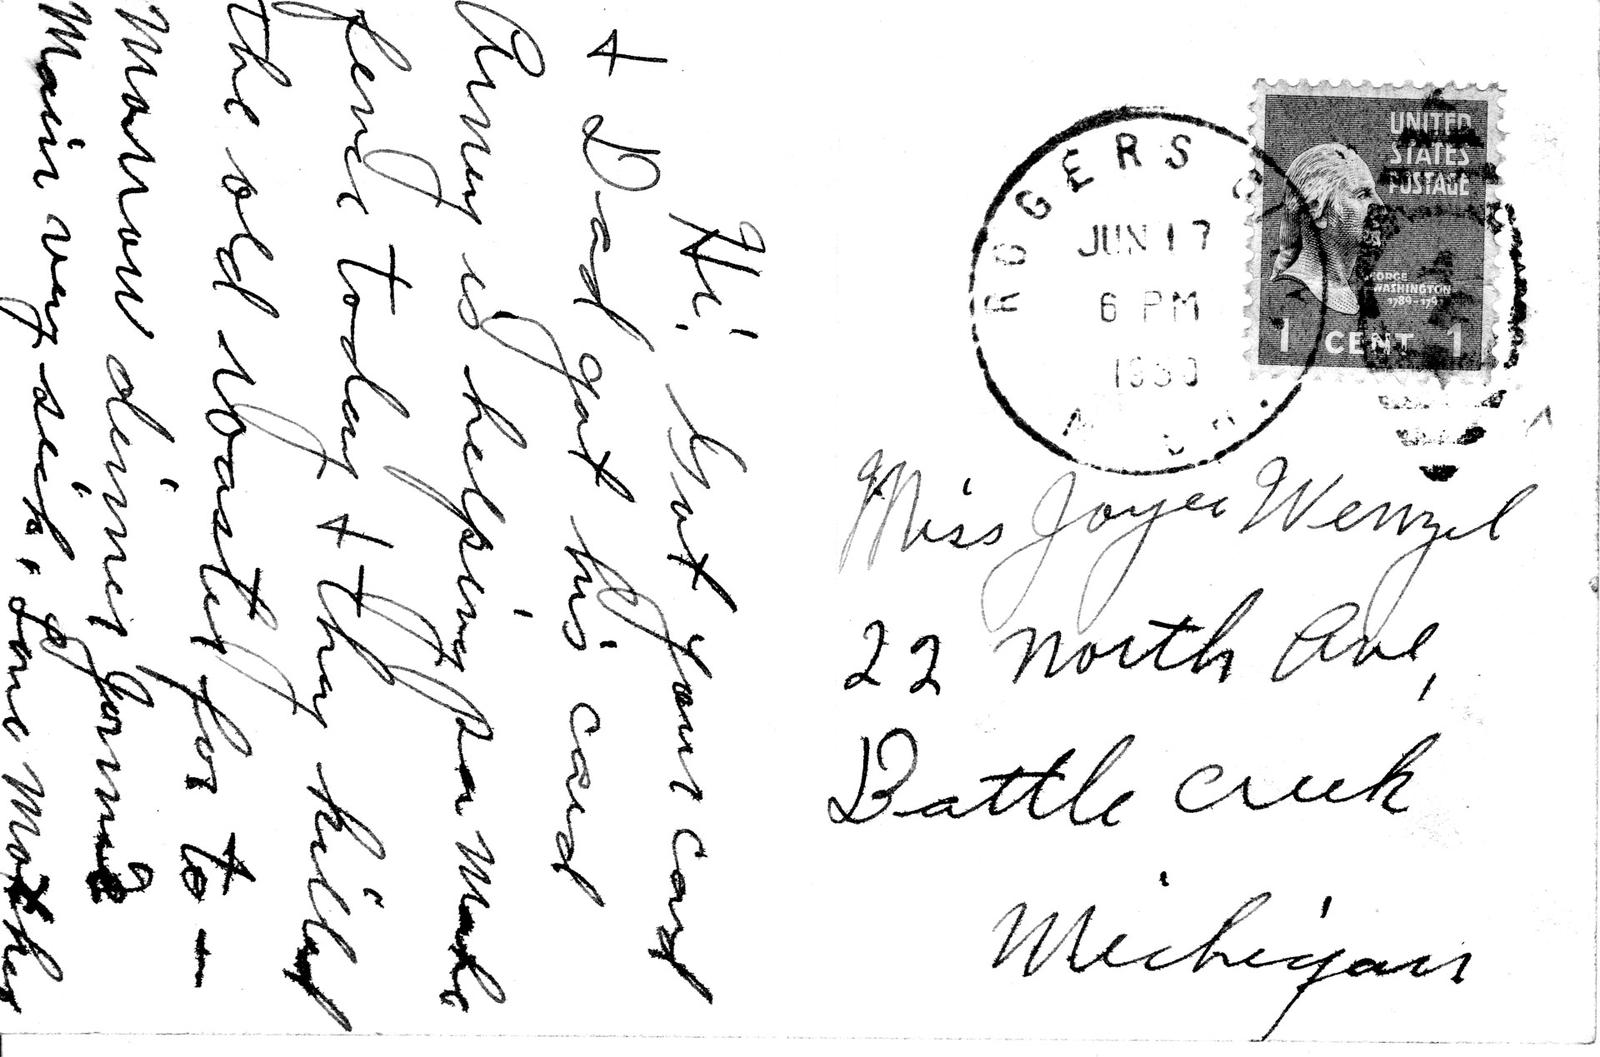 Hi. Got your card
+ Dad got his card
is helping pa make
fence today + they killed
the old rooster for to-
morrow dinner
very sick. Love Mother
ROGERS C
JUN 17
6 PM
MICH.
UNITED
STATES
POSTAGE
GEORGE
WASHINGTON
1789-179
1 CENT 1
Miss Joyce Wenzel
22 North Ave,
Battle Creek
Michigan